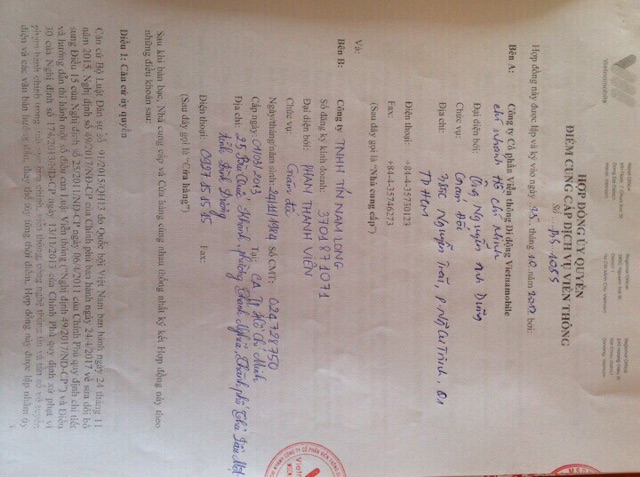 Vietnamobile
HỢP ĐỒNG ỦY QUYỀN
ĐIỂM CUNG CẤP DỊCH VỤ VIỄN THÔNG
Số:
Hợp đồng này được lập và ký vào ngày tháng 10 năm 2017 bởi:
Bên A: Công ty Cổ phần Viễn thông Di động Vietnamobile
chi nhánh Hồ Chí Minh
Đại diện bởi: Ông Nguyễn Anh Dũng
Chức vụ: Giám Đốc
Địa chỉ: Nguyễn Trãi, P. Nguyễn Cư Trinh, Q1
TP HCM
Điện thoại: +84-4-35730123
Fax: +84-4-35746273
(Sau đây gọi là "Nhà cung cấp")
Và:
Bên B: Công ty TNHH TÍN NAM LONG
Số đăng ký kinh doanh: 3701871071
Đại diện bởi: PHAN THANH VIÊN
Chức vụ: Giám đốc
Ngày/tháng/năm sinh: 24/11/1984 Số CMT: 024728750
Cấp ngày: 2013 Tại: CA TP Hồ Chí Minh
Địa chỉ: 25 Bùi Quốc Khánh, phường Chánh Nghĩa, Thành phố Thủ Dầu Một
tỉnh Bình Dương
Điện thoại: 15 15 15 Fax:
(Sau đây gọi là "Cửa hàng")
Sau khi bàn bạc, Nhà cung cấp và Cửa hàng cùng nhau thống nhất ký kết Hợp đồng này theo
những điều khoản sau:
Điều 1: Căn cứ ủy quyền
Căn cứ Bộ Luật Dân sự số 91/2015/QH13 do Quốc hội Việt Nam ban hàng ngày 24 tháng 11
năm 2015, Nghị định số 49/2017/NĐ-CP của Chính phủ ban hành ngày 24/4/2017 về sửa đổi bổ
sung Điều 15 của Nghị định số 25/2011/NĐ-CP ngày 06/4/2011 của Chính Phủ quy định chi tiết
và hướng dẫn thi hành một số điều của Luật Viễn thông ("Nghị định 49/2017/NĐ-CP") và Điều
30 của Nghị định số 174/2013/NĐ-CP ngày 13/11/2013 của Chính Phủ quy định xử phạt vi
phạm hành chính trong viễn thông, công nghệ thông tin và tần số vô tuyến
điện và các văn bản thay thế tùy từng thời điểm, Hợp đồng này được lập nhằm ủy